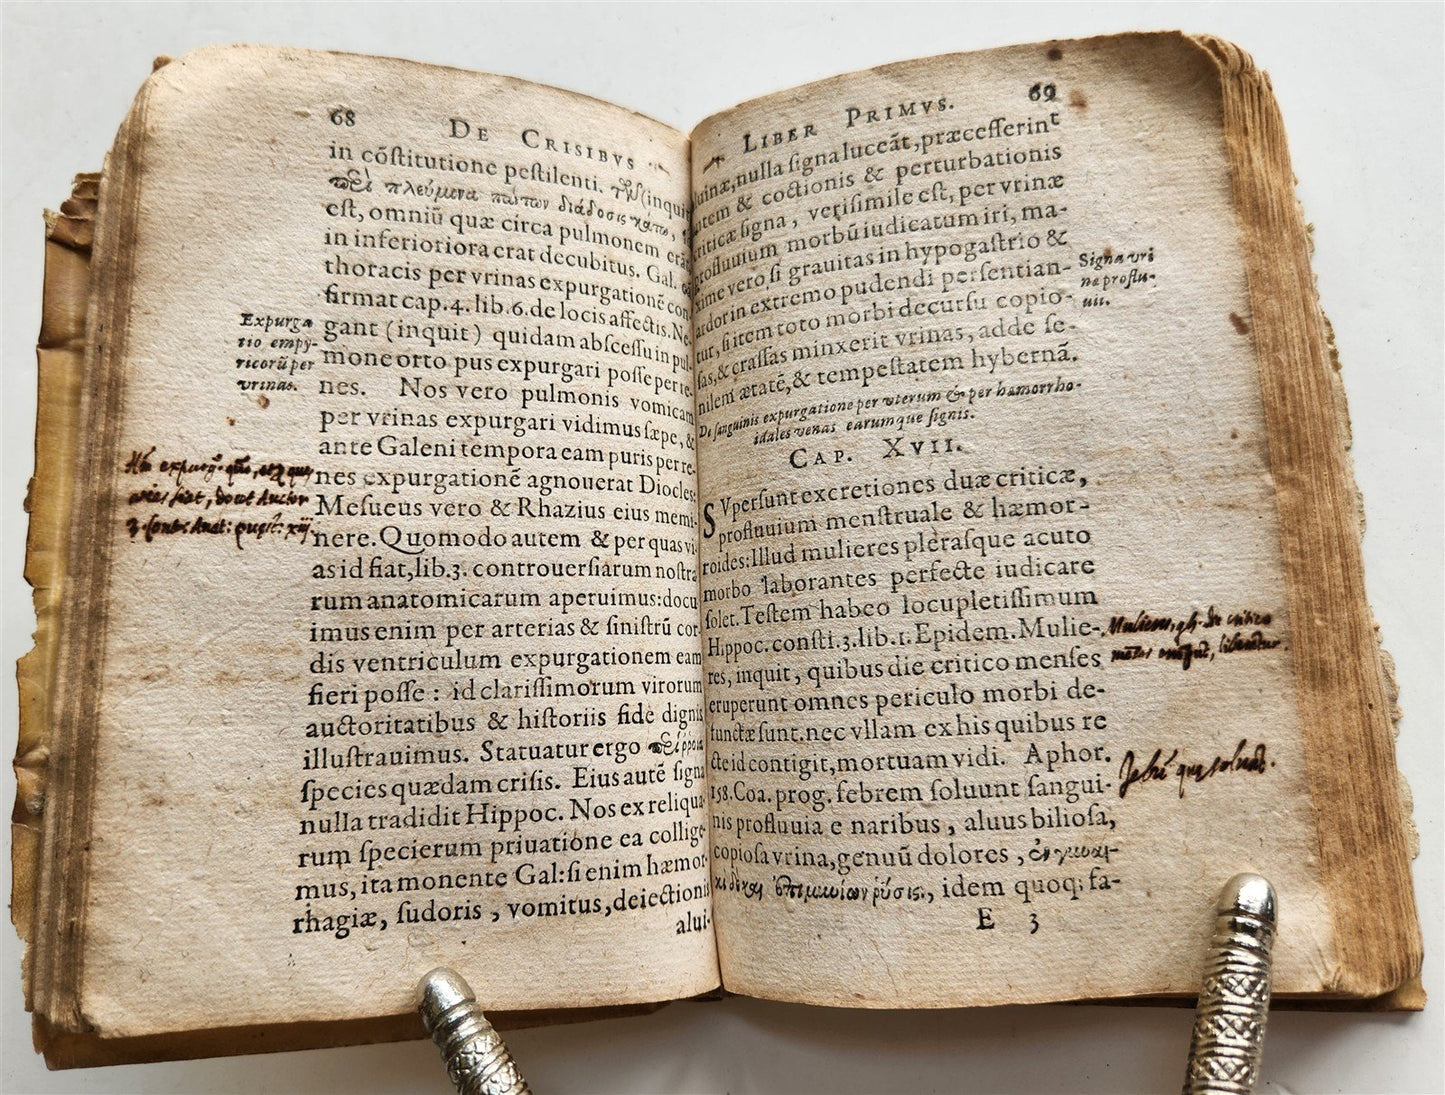 68
DE CRISIBVS
in cōſtitutione peſtilenti. (inquit
πλεύμενα διάδοσις
eſt, omniū quæ circa pulmonem erā-
in inferioriora erat decubitus. Gal.
thoracis per vrinas expurgationē con
firmat cap.4. lib.6. de locis affectis. Ne-
gant (inquit) quidam abſceſſu in pul-
mone orto pus expurgari poſſe per re-
nes. Nos vero pulmonis vomicam
per vrinas expurgari vidimus ſæpe, &
ante Galeni tempora eam puris per re-
nes expurgationē agnouerat Diocles:
Meſueus vero & Rhazius eius memi-
nere. Quomodo autem & per quas vi-
as id fiat, lib.3. controuerſiarum noſtra
rum anatomicarum aperuimus: docu
imus enim per arterias & ſiniſtrū cor-
dis ventriculum expurgationem eam
fieri poſſe : id clariſſimorum virorum
auctoritatibus & hiſtoriis fide dignis
illuſtrauimus. Statuatur ergo
ſpecies quædam criſis. Eius autē ſigna
nulla tradidit Hippoc. Nos ex reliqua-
rum ſpecierum priuatione ea collige-
mus, ita monente Gal: ſi enim hæmor-
rhagiæ, ſudoris , vomitus, deiectionis
alui-
Expurga
tio empy-
ricorū per
vrinas.
LIBER PRIMVS.
69
luinæ, nulla ſigna luceāt, præceſſerint
autem & coctionis & perturbationis
criticæ ſigna , veriſimile eſt, per vrinæ
profluuium morbū iudicatum iri, ma-
xime vero ſi grauitas in hypogaſtrio &
ardor in extremo pudendi perſentian-
tur, ſi item toto morbi decurſu copio-
ſas, & craſſas minxerit vrinas, adde ſe-
nilem ætatē, & tempeſtatem hybernā.
Signa vri
næ proflu-
uii.
De ſanguinis expurgatione per vterum & per hæmorrho-
idales venas earumque ſignis.
CAP. XVII.
SVperſunt excretiones duæ criticæ,
profluuium menſtruale & hæmor-
roides: Illud mulieres pleraſque acuto
morbo laborantes perfecte iudicare
ſolet. Teſtem habeo locupletiſſimum
Hippoc. conſti.3. lib.1. Epidem. Mulie-
res, inquit , quibus die critico menſes
eruperunt omnes periculo morbi de-
functæ ſunt. nec vllam ex his quibus re
cte id contigit, mortuam vidi. Aphor.
158. Coa. prog. febrem ſoluunt ſangui-
nis profluuia e naribus , aluus bilioſa,
copioſa vrina, genuū dolores ,
idem quoq; fa-
E 3